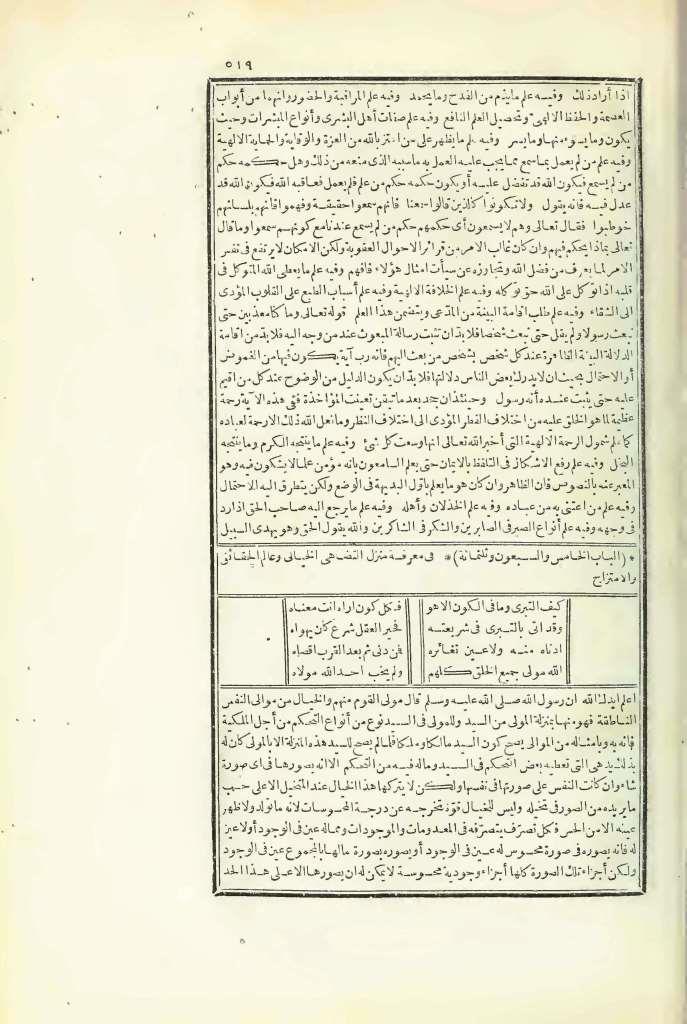 ٥١٩
اذا أراد ذلك وفيه علم ما يذم من القدح وما يحمد وفيه علم المراقبة والحضور وانهما من أبواب
العصمة والحفظ الالهى وتحصيل العلم النافع وفيه علم صفات أهل البشرى وأنواع المبشرات وحيث
يكون وما يسوء منها وما يسر وفيه علم ما يظهر على من اعتز بالله من العزة والوقاية والحماية الالهية
وفيه علم من لم يعمل بما سمع مما يجب عليه العمل به ما سببه الذى منعه من ذلك وهل حكمه حكم
من لم يسمع فيكون الله قد تفضل عليه أو يكون حكمه حكم من علم فلم يعمل فعاقبه الله فيكون الله قد
عدل فيه فانه يقول ولا تكونوا كالذين قالوا سمعنا فانهم سمعوا حقيقة وفهموا فانهم بلسانهم
خوطبوا فقال تعالى وهم لا يسمعون أى حكمهم حكم من لم يسمع عندنا مع كونهم سمعوا وما قال
تعالى بماذا يحكم فيهم وان كان غالب الامر من قرائن الاحوال العقوبة ولكن الامكان لا يرتفع فى نفس
الامر لما يعرف من فضل الله وتجاوزه عن سيآت امثال هؤلاء فافهم وفيه علم ما يعطى الله المتوكل فى
قلبه اذا توكل على الله حق توكله وفيه علم الخلافة الالهية وفيه علم أسباب الطبع على القلوب المؤدى
الى الشقاء وفيه علم طلب اقامة البينة من المدعى ويتضمن هذا العلم قوله تعالى وما كنا معذبين حتى
نبعث رسولا ولم يقل حتى نبعث شخصا فلا بد ان تثبت رسالة المبعوث عند من وجه اليه فلا بد من اقامة
الدلالة البينة الظاهرة عند كل شخص شخص ممن بعث اليهم فانه رب آية يكون فيها من الغموض
أو الاحتمال بحيث ان لا يدرك بعض الناس دلالتها فلا بد أن يكون الدليل من الوضوح عند كل من اقيم
عليه حتى يثبت عنده أنه رسول وحينئذ ان جحد بعد ما تيقن تعينت المؤاخذة ففى هذه الآية رحمة
عظيمة لما هو الخلق عليه من اختلاف الفطر المؤدى الى اختلاف النظر وما فعل الله ذلك الا رحمة لعباده
كما علم شمول الرحمة الالهية التى أخبر الله تعالى انها وسعت كل شئ وفيه علم ما ينتجه الكرم وما ينتجه
البخل وفيه علم رفع الاشكال فى التلفظ بالايمان حتى يعلم السامعون بانه مؤمن علما لا يشكون فيه وهو
المعبر عنه بالنصوص فان الظاهر وان كان هو ما يعلم باول البديهة فى الوضع ولكن يتطرق اليه الاحتمال
وفيه علم من اعتنى به من عباده وفيه علم الخذلان وأهله وفيه علم ما يرجع اليه صاحب الحق اذا رد
فى وجهه وفيه علم أنواع الصبر فى الصابرين والشكر فى الشاكرين والله يقول الحق وهو يهدى السبيل
* (الباب الخامس والسبعون وثلثمائة) * فى معرفة منزل التضاهى الخيالى وعالم الحقائق
والامتزاج
كيف التبرى وما فى الكون الا هو فكل كون اراه انت معناه
وقد اتى بالتبرى فى شريعته فحير العقل شرع كان يهواه
ادناه منه ولا عين تغايره فمن دنى ثم بعد القرب اقصاه
الله مولى جميع الخلق كلهم ولم يخب احد الله مولاه
اعلم ايدك الله ان رسول الله صلى الله عليه وسلم قال مولى القوم منهم والخيال من موالى النفس
الناطقة فهو منها بمنزلة المولى من السيد وللمولى فى السيد نوع من أنواع التحكم من أجل الملكية
فانه به وبامثاله من الموالى يصح كون السيد مالكا وملكا فلما لم يصح للسيد هذه المنزلة الا بالمولى كان له
بذلك يد هى التى تعطيه بعض التحكم فى السيد وما له فيه من التحكم الا انه يصورها فى اى صورة
شاء وان كانت النفس على صورتها فى نفسها ولكن لا يتركها هذا الخيال عند المتخيل الا على حسب
ما يريده من الصور فى تخيله وليس للخيال قوة تخرجه عن درجة المحسوسات لانه ما تولد ولا ظهر
عينه الا من الحس فكل تصرف يتصرفه فى المعدومات والموجودات ومما له عين فى الوجود أو لا عين
له فانه يصوره فى صورة محسوس له عين فى الوجود أو يصوره بصورة ما لها بالمجموع عين فى الوجود
ولكن أجزاء تلك الصورة كلها أجزاء وجودية محسوسة لا يمكن له ان يصورها الا على هذا الحد